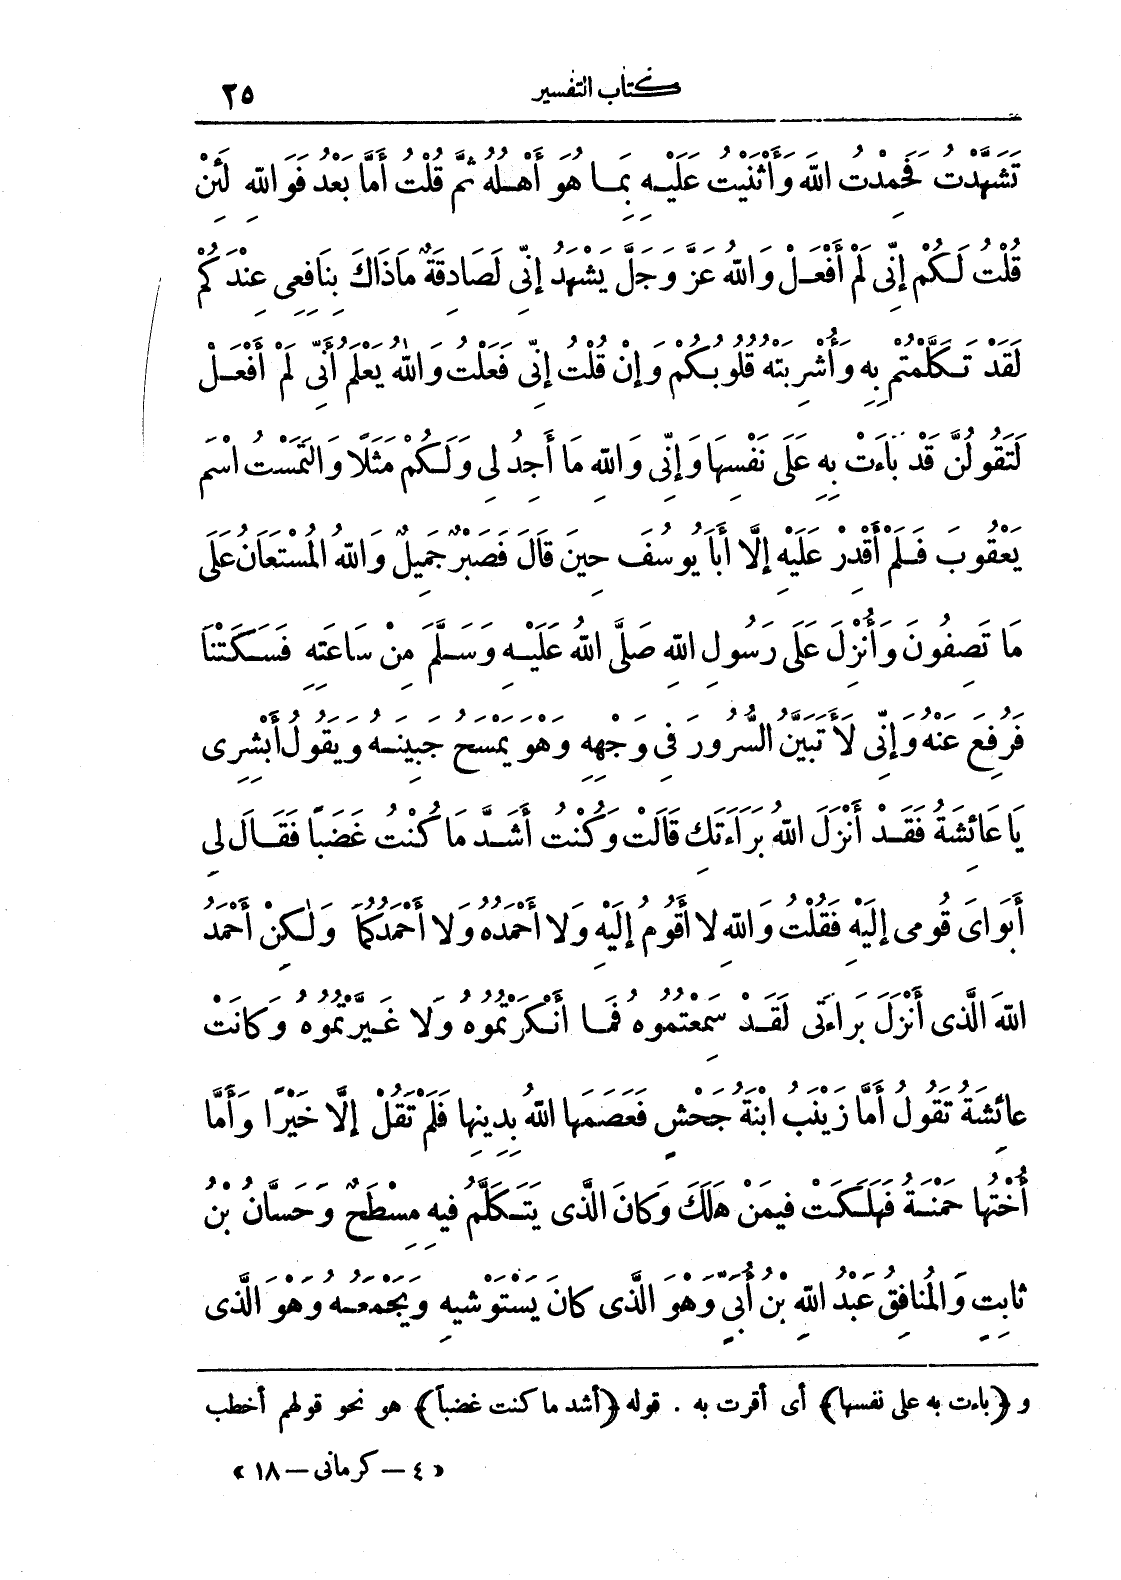 كتاب التفسير ٢٥
تَشَهَّدْتُ فَحَمِدْتُ اللَّهَ وَأَثْنَيْتُ عَلَيْهِ بِمَا هُوَ أَهْلُهُ ثُمَّ قُلْتُ أَمَّا بَعْدُ فَوَاللَّهِ لَئِنْ
قُلْتُ لَكُمْ إِنِّى لَمْ أَفْعَلْ وَاللَّهُ عَزَّ وَجَلَّ يَشْهَدُ إِنِّى لَصَادِقَةٌ مَا ذَاكَ بِنَافِعِى عِنْدَكُمْ
لَقَدْ تَكَلَّمْتُمْ بِهِ وَأُشْرِبَتْهُ قُلُوبُكُمْ وَإِنْ قُلْتُ إِنِّى فَعَلْتُ وَاللَّهُ يَعْلَمُ أَنِّى لَمْ أَفْعَلْ
لَتَقُولُنَّ قَدْ بَاءَتْ بِهِ عَلَى نَفْسِهَا وَإِنِّى وَاللَّهِ مَا أَجِدُ لِى وَلَكُمْ مَثَلًا وَالْتَمَسْتُ اسْمَ
يَعْقُوبَ فَلَمْ أَقْدِرْ عَلَيْهِ إِلَّا أَبَا يُوسُفَ حِينَ قَالَ فَصَبْرٌ جَمِيلٌ وَاللَّهُ الْمُسْتَعَانُ عَلَى
مَا تَصِفُونَ وَأُنْزِلَ عَلَى رَسُولِ اللَّهِ صَلَّى اللَّهُ عَلَيْهِ وَسَلَّمَ مِنْ سَاعَتِهِ فَسَكَتْنَا
فَرُفِعَ عَنْهُ وَإِنِّى لَأَتَبَيَّنُ السُّرُورَ فِى وَجْهِهِ وَهُوَ يَمْسَحُ جَبِينَهُ وَيَقُولُ أَبْشِرِى
يَا عَائِشَةُ فَقَدْ أَنْزَلَ اللَّهُ بَرَاءَتَكِ قَالَتْ وَكُنْتُ أَشَدَّ مَا كُنْتُ غَضَبًا فَقَالَ لِى
أَبَوَاىَ قُومِى إِلَيْهِ فَقُلْتُ وَاللَّهِ لَا أَقُومُ إِلَيْهِ وَلَا أَحْمَدُهُ وَلَا أَحْمَدُكُمَا وَلَكِنْ أَحْمَدُ
اللَّهَ الَّذِى أَنْزَلَ بَرَاءَتِى لَقَدْ سَمِعْتُمُوهُ فَمَا أَنْكَرْتُمُوهُ وَلَا غَيَّرْتُمُوهُ وَكَانَتْ
عَائِشَةُ تَقُولُ أَمَّا زَيْنَبُ ابْنَةُ جَحْشٍ فَعَصَمَهَا اللَّهُ بِدِينِهَا فَلَمْ تَقُلْ إِلَّا خَيْرًا وَأَمَّا
أُخْتُهَا حَمْنَةُ فَهَلَكَتْ فِيمَنْ هَلَكَ وَكَانَ الَّذِى يَتَكَلَّمُ فِيهِ مِسْطَحٌ وَحَسَّانُ بْنُ
ثَابِتٍ وَالْمُنَافِقُ عَبْدُ اللَّهِ بْنُ أُبَىٍّ وَهْوَ الَّذِى كَانَ يَسْتَوْشِيهِ وَيَجْمَعُهُ وَهْوَ الَّذِى
و ﴿باءت به على نفسها﴾ أى أقرت به . قوله ﴿أشد ما كنت غضباً﴾ هو نحو قولهم أخطب
« ٤ - كرمانى - ١٨ »